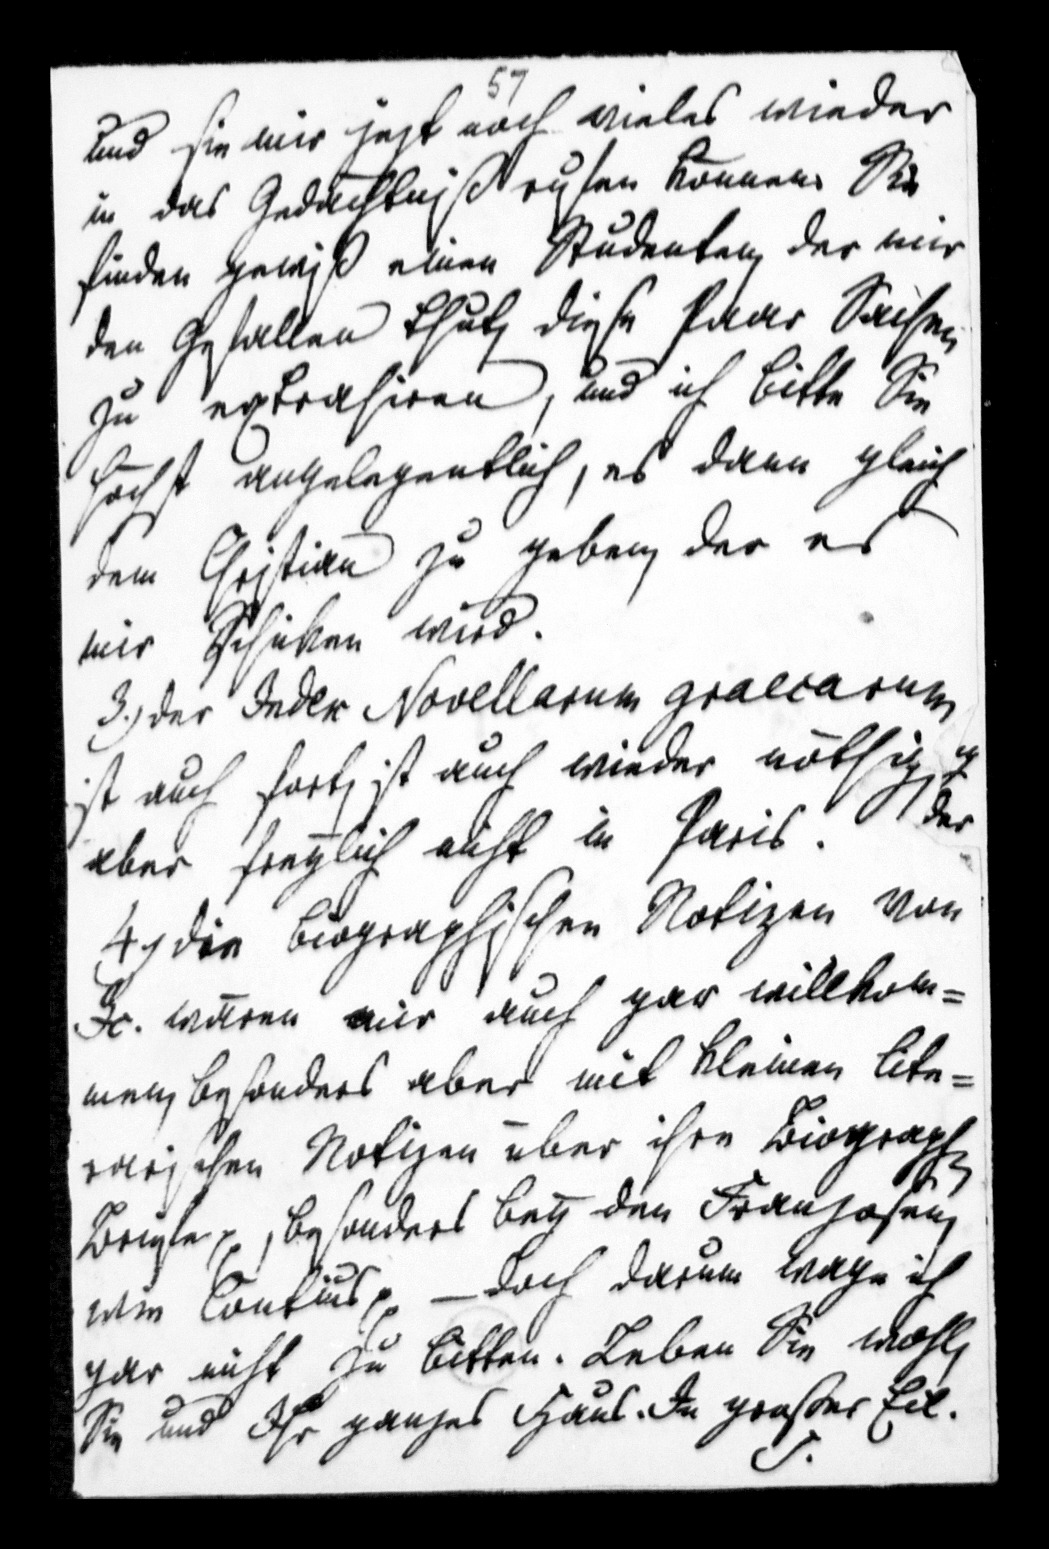 57
und sie mir jezt noch vieles wieder
in das Gedächtniß rufen können. Sie
finden gewiß einen Studenten, der mir
den Gefallen thut, diese Paar Sachen
zu extrahiren, und ich bitte Sie
höchst angelegentlich, es dann gleich
dem Christian zu geben, der es
mir schicken wird.
3.) der Index Novellarum graecarum
ist auch fort, ist auch wieder nöthig,
aber freylich nicht in Paris. der
4.) die biographischen Notizen von
wären mir auch gar willkom=
men, besonders aber mit kleinen lite=
rarischen Notizen über ihre Biograph,
Briefe, besonders bey den Franzosen,
wie Contius, — doch darum wage ich
gar nicht zu bitten. Leben Sie wohl,
Sie und Ihr ganzes Haus. In großer Eil.
S.